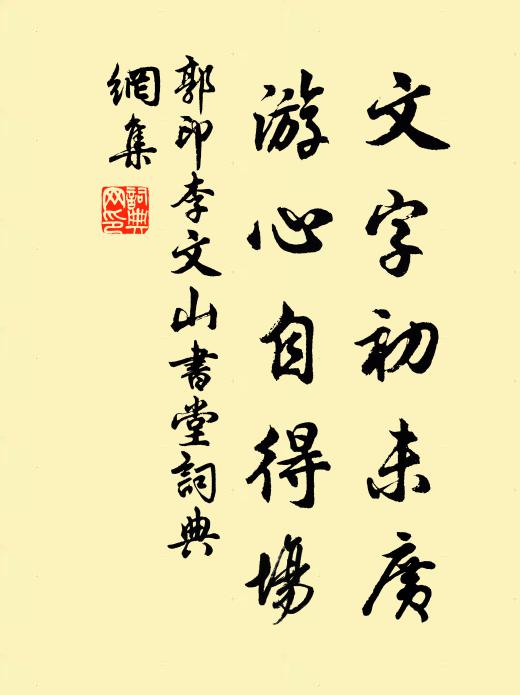 文字初未廣
游心自得場
郭印李文山書堂詞典
網集
詞典
网印